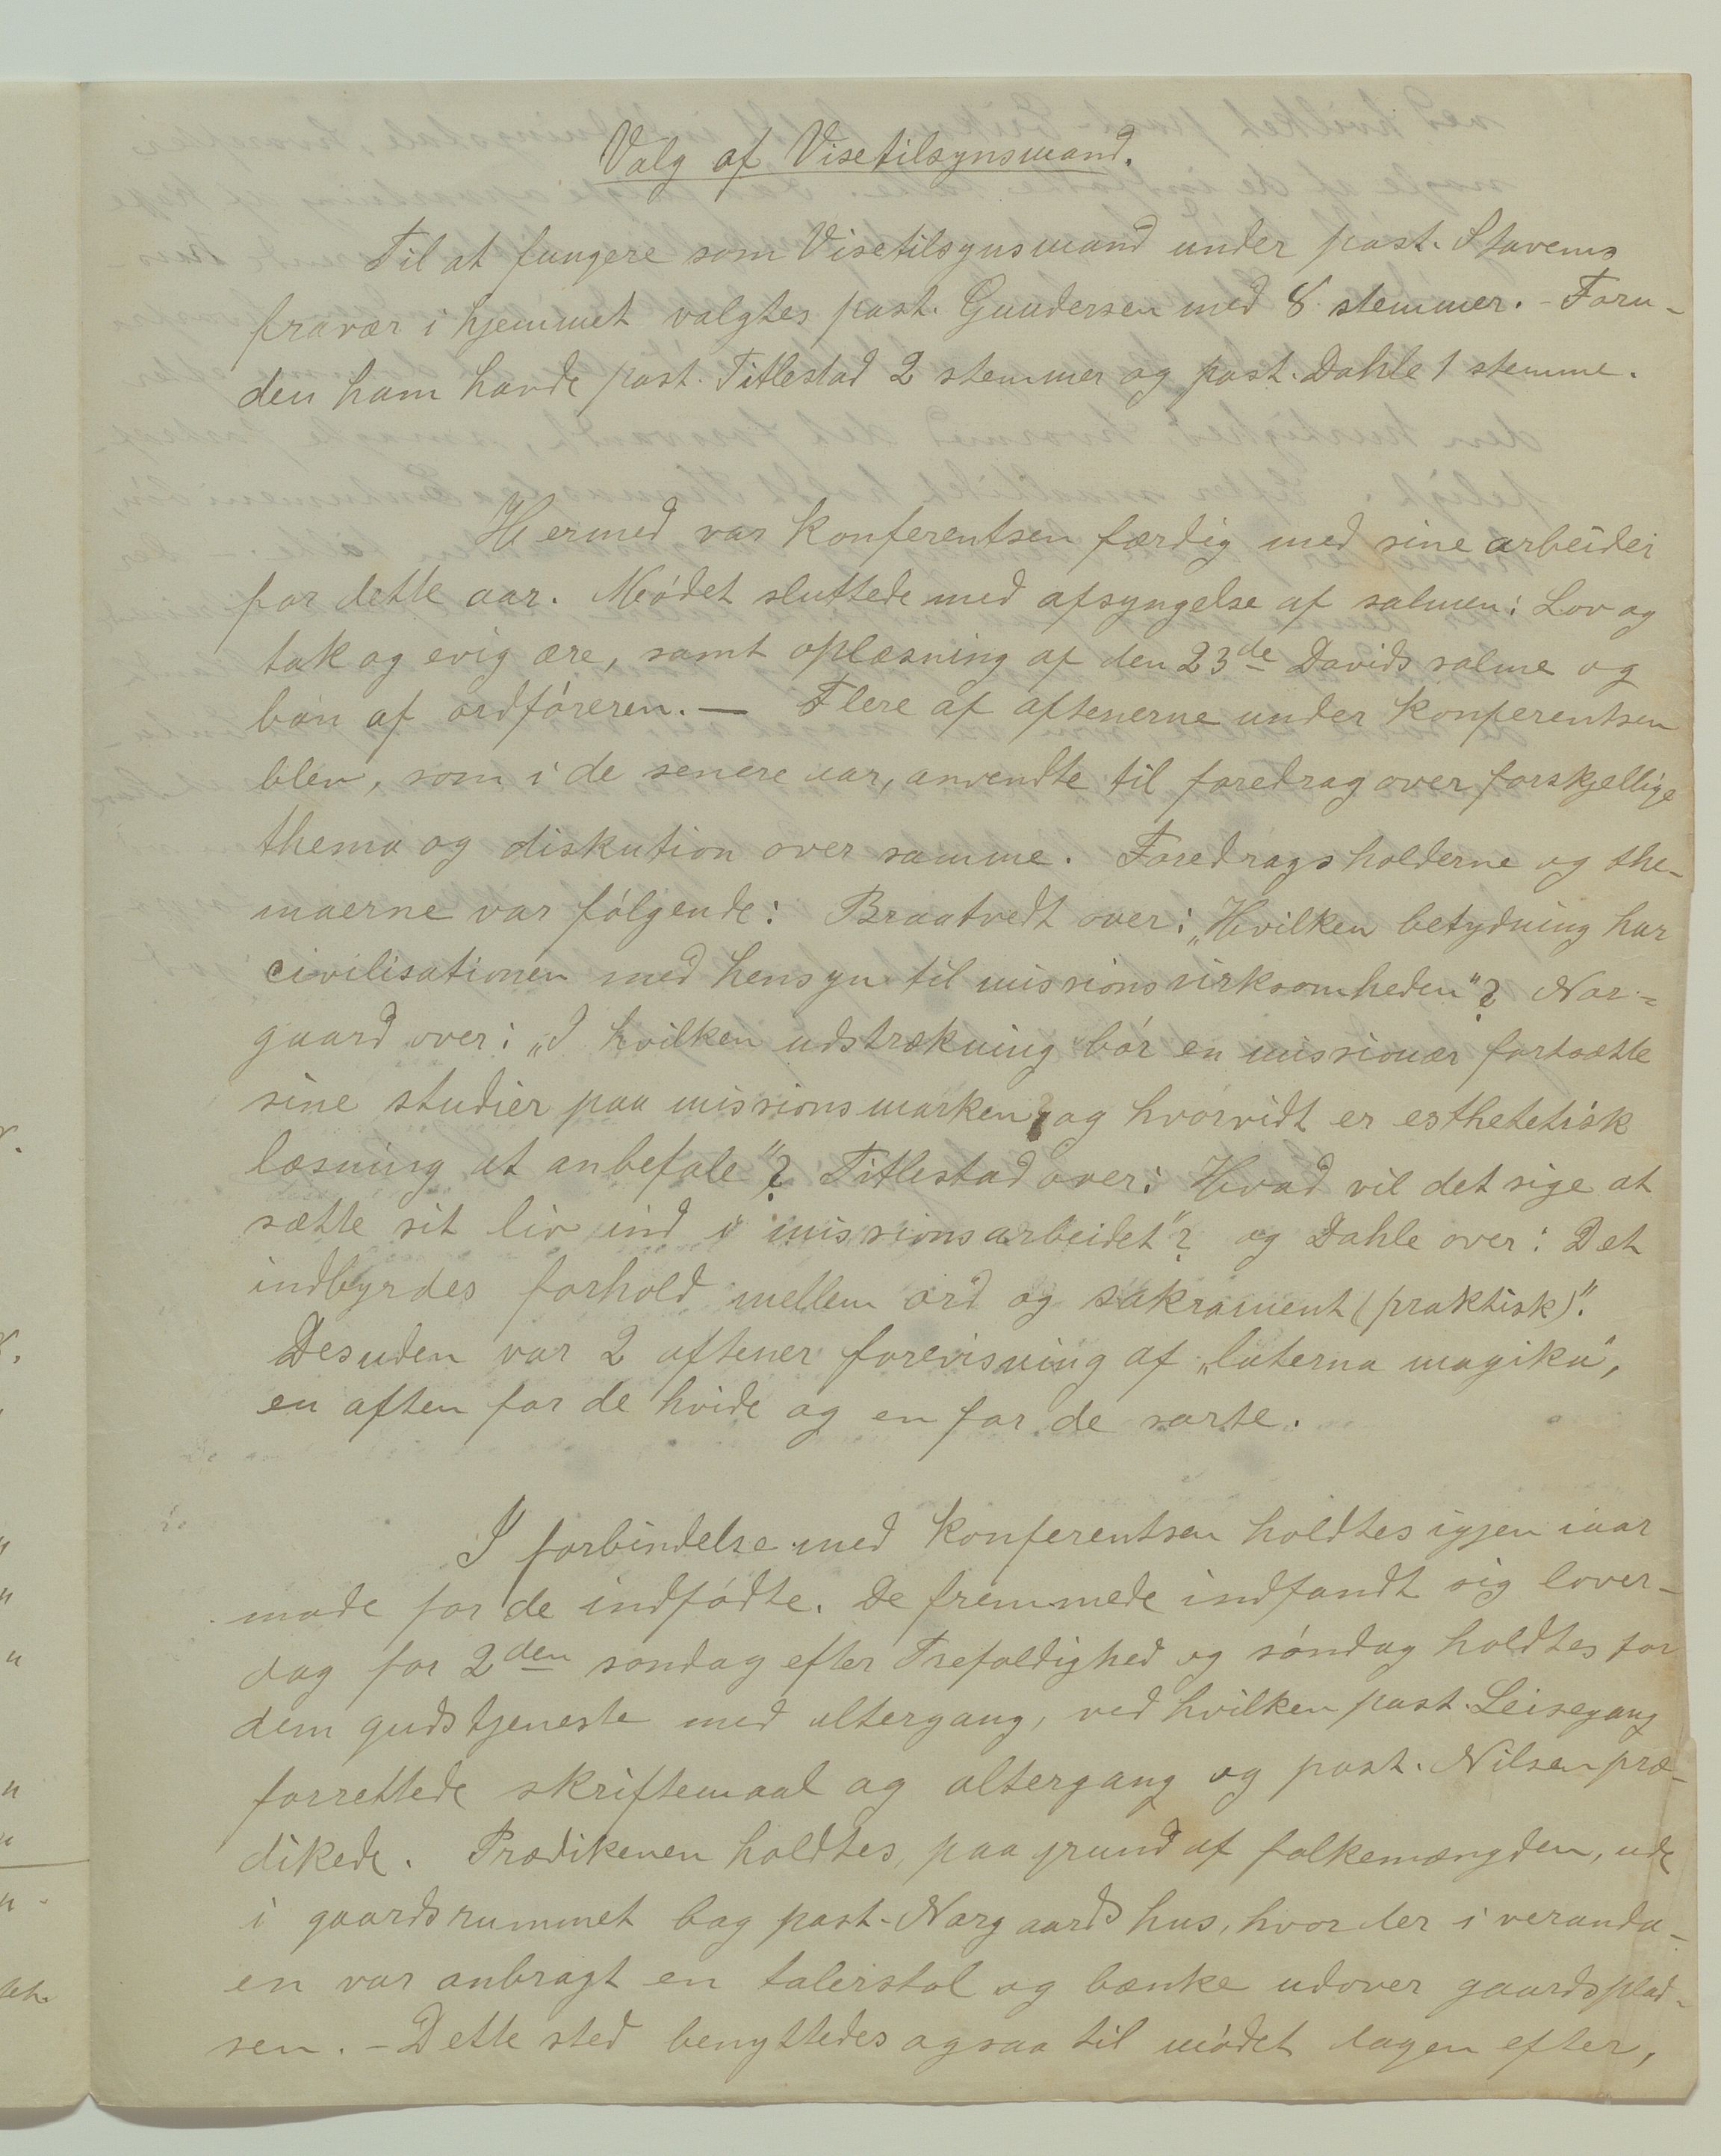 Valg af Visetilsynsmand.
Til at fungere som Visetilsynsmand under past. Stavems
fravær i hjemmet valgtes past. Gundersen med 8 stemmer. - Foru-
den ham havde past. Titlestad 2 stemmer og past. Dahle 1 stemme.
Hermed var konferentsen færdig med sine arbeider
for dette aar. Mödet sluttede med afsyngelse af salmen: Lov og
tak og evig ære, samt oplæsning af den 23de Davids salme og
bön af ordföreren. — Flere af aftenerne under konferentsen
blev, som i de senere aar, anvendte til foredrag over forskjellige
thema og diskution over samme. Foredragsholderne og the-
maerne var fölgende: Braatvedt over: „Hvilken betydning har
civilisationen med hensyn til missionsvirksomheden"? Nor-
gaard over: „I hvilken udstrækning bör en missionær fortsætte
sine studier paa missionsmarken, og hvorvidt er esthetetisk
læsning at anbefale"? Titlestad over: Hvad vil det sige at
sætte sit liv ind i missionsarbeidet"? og Dahle over: Det
indbyrdes forhold mellem ord og sakrament (praktisk)".
Desuden var 2 aftener forevisning af „laterna magika",
en aften for de hvide og en for de sorte.
I forbindelse med konferentsen holdtes igjen iaar
møde for de indfödte. De fremmede indfandt sig löver-
dag for 2den söndag efter Trefoldighed og söndag holdtes for
dem gudstjeneste med altergang, ved hvilken past. Leisegang
forrettede skriftemaal og altergang og past. Nilsen præ-
dikede. Prædikenen holdtes, paa grund af folkemængden, ude
i gaardsrummet bag past. Norgaards hus, hvor der i veranda-
en var anbragt en talerstol og bænke udover gaardsplad-
sen. - Dette sted benyttedes ogsaa til mödet dagen efter,